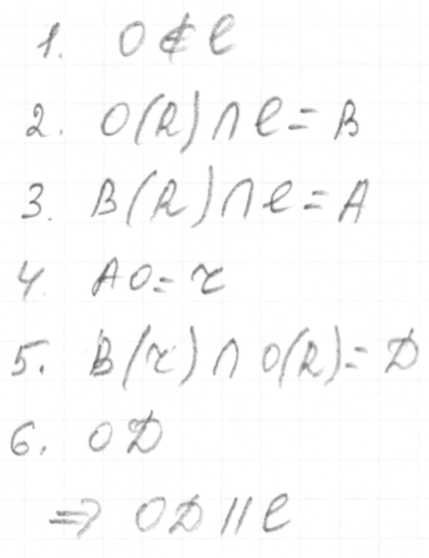 1. O ∉ l
2. O(R) ∩ l = B
3. B(R) ∩ l = A
4. AO = r
5. B(r) ∩ O(R) = D
6. OD
⇒ OD || l